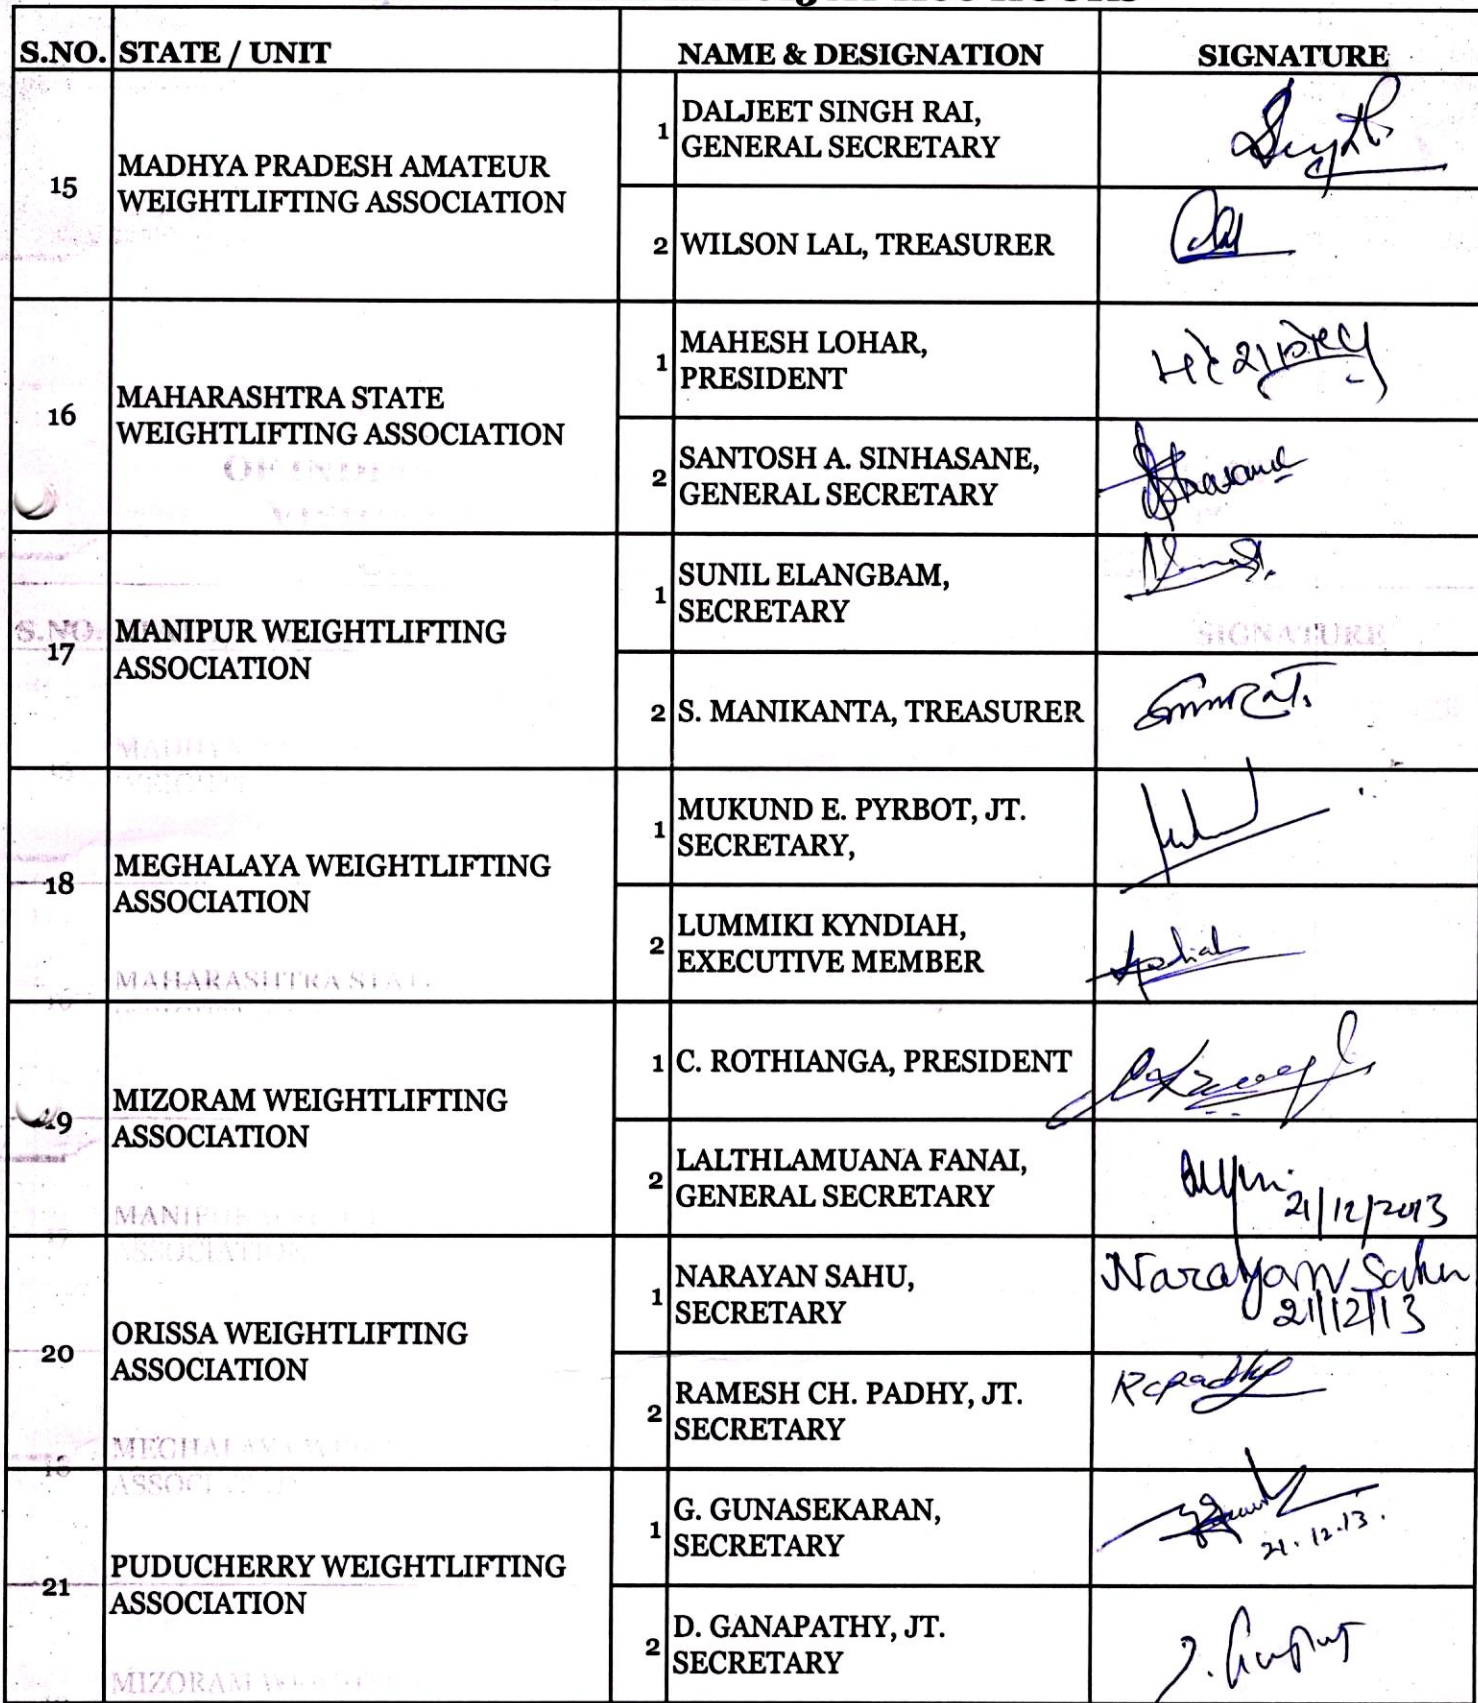 S.NO. STATE / UNIT NAME & DESIGNATION SIGNATURE
15
MADHYA PRADESH AMATEUR
WEIGHTLIFTING ASSOCIATION
1
DALJEET SINGH RAI,
GENERAL SECRETARY
2 WILSON LAL, TREASURER
16
MAHARASHTRA STATE
WEIGHTLIFTING ASSOCIATION
1
MAHESH LOHAR,
PRESIDENT
2
SANTOSH A. SINHASANE,
GENERAL SECRETARY
17
MANIPUR WEIGHTLIFTING
ASSOCIATION
1
SUNIL ELANGBAM,
SECRETARY
2 S. MANIKANTA, TREASURER
18
MEGHALAYA WEIGHTLIFTING
ASSOCIATION
1
MUKUND E. PYRBOT, JT.
SECRETARY,
2
LUMMIKI KYNDIAH,
EXECUTIVE MEMBER
19
MIZORAM WEIGHTLIFTING
ASSOCIATION
1 C. ROTHIANGA, PRESIDENT
2
LALTHLAMUANA FANAI,
GENERAL SECRETARY
21/12/2013
20
ORISSA WEIGHTLIFTING
ASSOCIATION
1
NARAYAN SAHU,
SECRETARY
Narayan Sahu
21/12/13
2
RAMESH CH. PADHY, JT.
SECRETARY
Rcpadhy
21
PUDUCHERRY WEIGHTLIFTING
ASSOCIATION
1
G. GUNASEKARAN,
SECRETARY
21.12.13.
2
D. GANAPATHY, JT.
SECRETARY